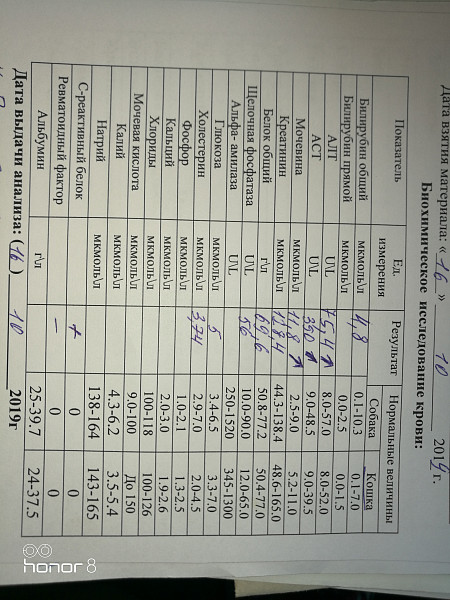 Дата взятия материала: «16» 10 2019 г.
Биохимическое исследование крови:
Показатель Ед. измерения Результат Нормальные величины
Собака Кошка
Билирубин общий мкмоль\л 4,8 0.1-10.3 0.1-7.0
Билирубин прямой мкмоль\л 0.0-2.5 0.0-1.5
АЛТ U\L 75,4 ↑ 8.0-57.0 8.0-52.0
АСТ U\L 390 ↑ 9.0-48.5 9.0-39.5
Мочевина мкмоль\л 11,8 ↑ 2.5-9.0 5.2-11.0
Креатинин мкмоль\л 44.3-138.4 48.6-165.0
Белок общий г\л 69,6 50.8-77.2 50.4-77.0
Щелочная фосфатаза U\L 56 10.0-90.0 12.0-65.0
Альфа- амилаза U\L 250-1520 345-1300
Глюкоза мкмоль\л 5 3.4-6.5 3.3-7.0
Холестерин мкмоль\л 3,74 2.9-7.0 2.0-4.5
Фосфор мкмоль\л 1.0-2.1 1.3-2.5
Кальций мкмоль\л 2.0-3.0 1.9-2.6
Хлориды мкмоль\л 100-118 100-126
Мочевая кислота мкмоль\л 9.0-100 До 150
Калий мкмоль\л 4.3-6.2 3.5-5.4
Натрий мкмоль\л 138-164 143-165
С-реактивный белок + 0 0
Ревматоидный фактор – 0 0
Альбумин г\л 25-39.7 24-37.5
Дата выдачи анализа: (16) 10 2019г
honor 8